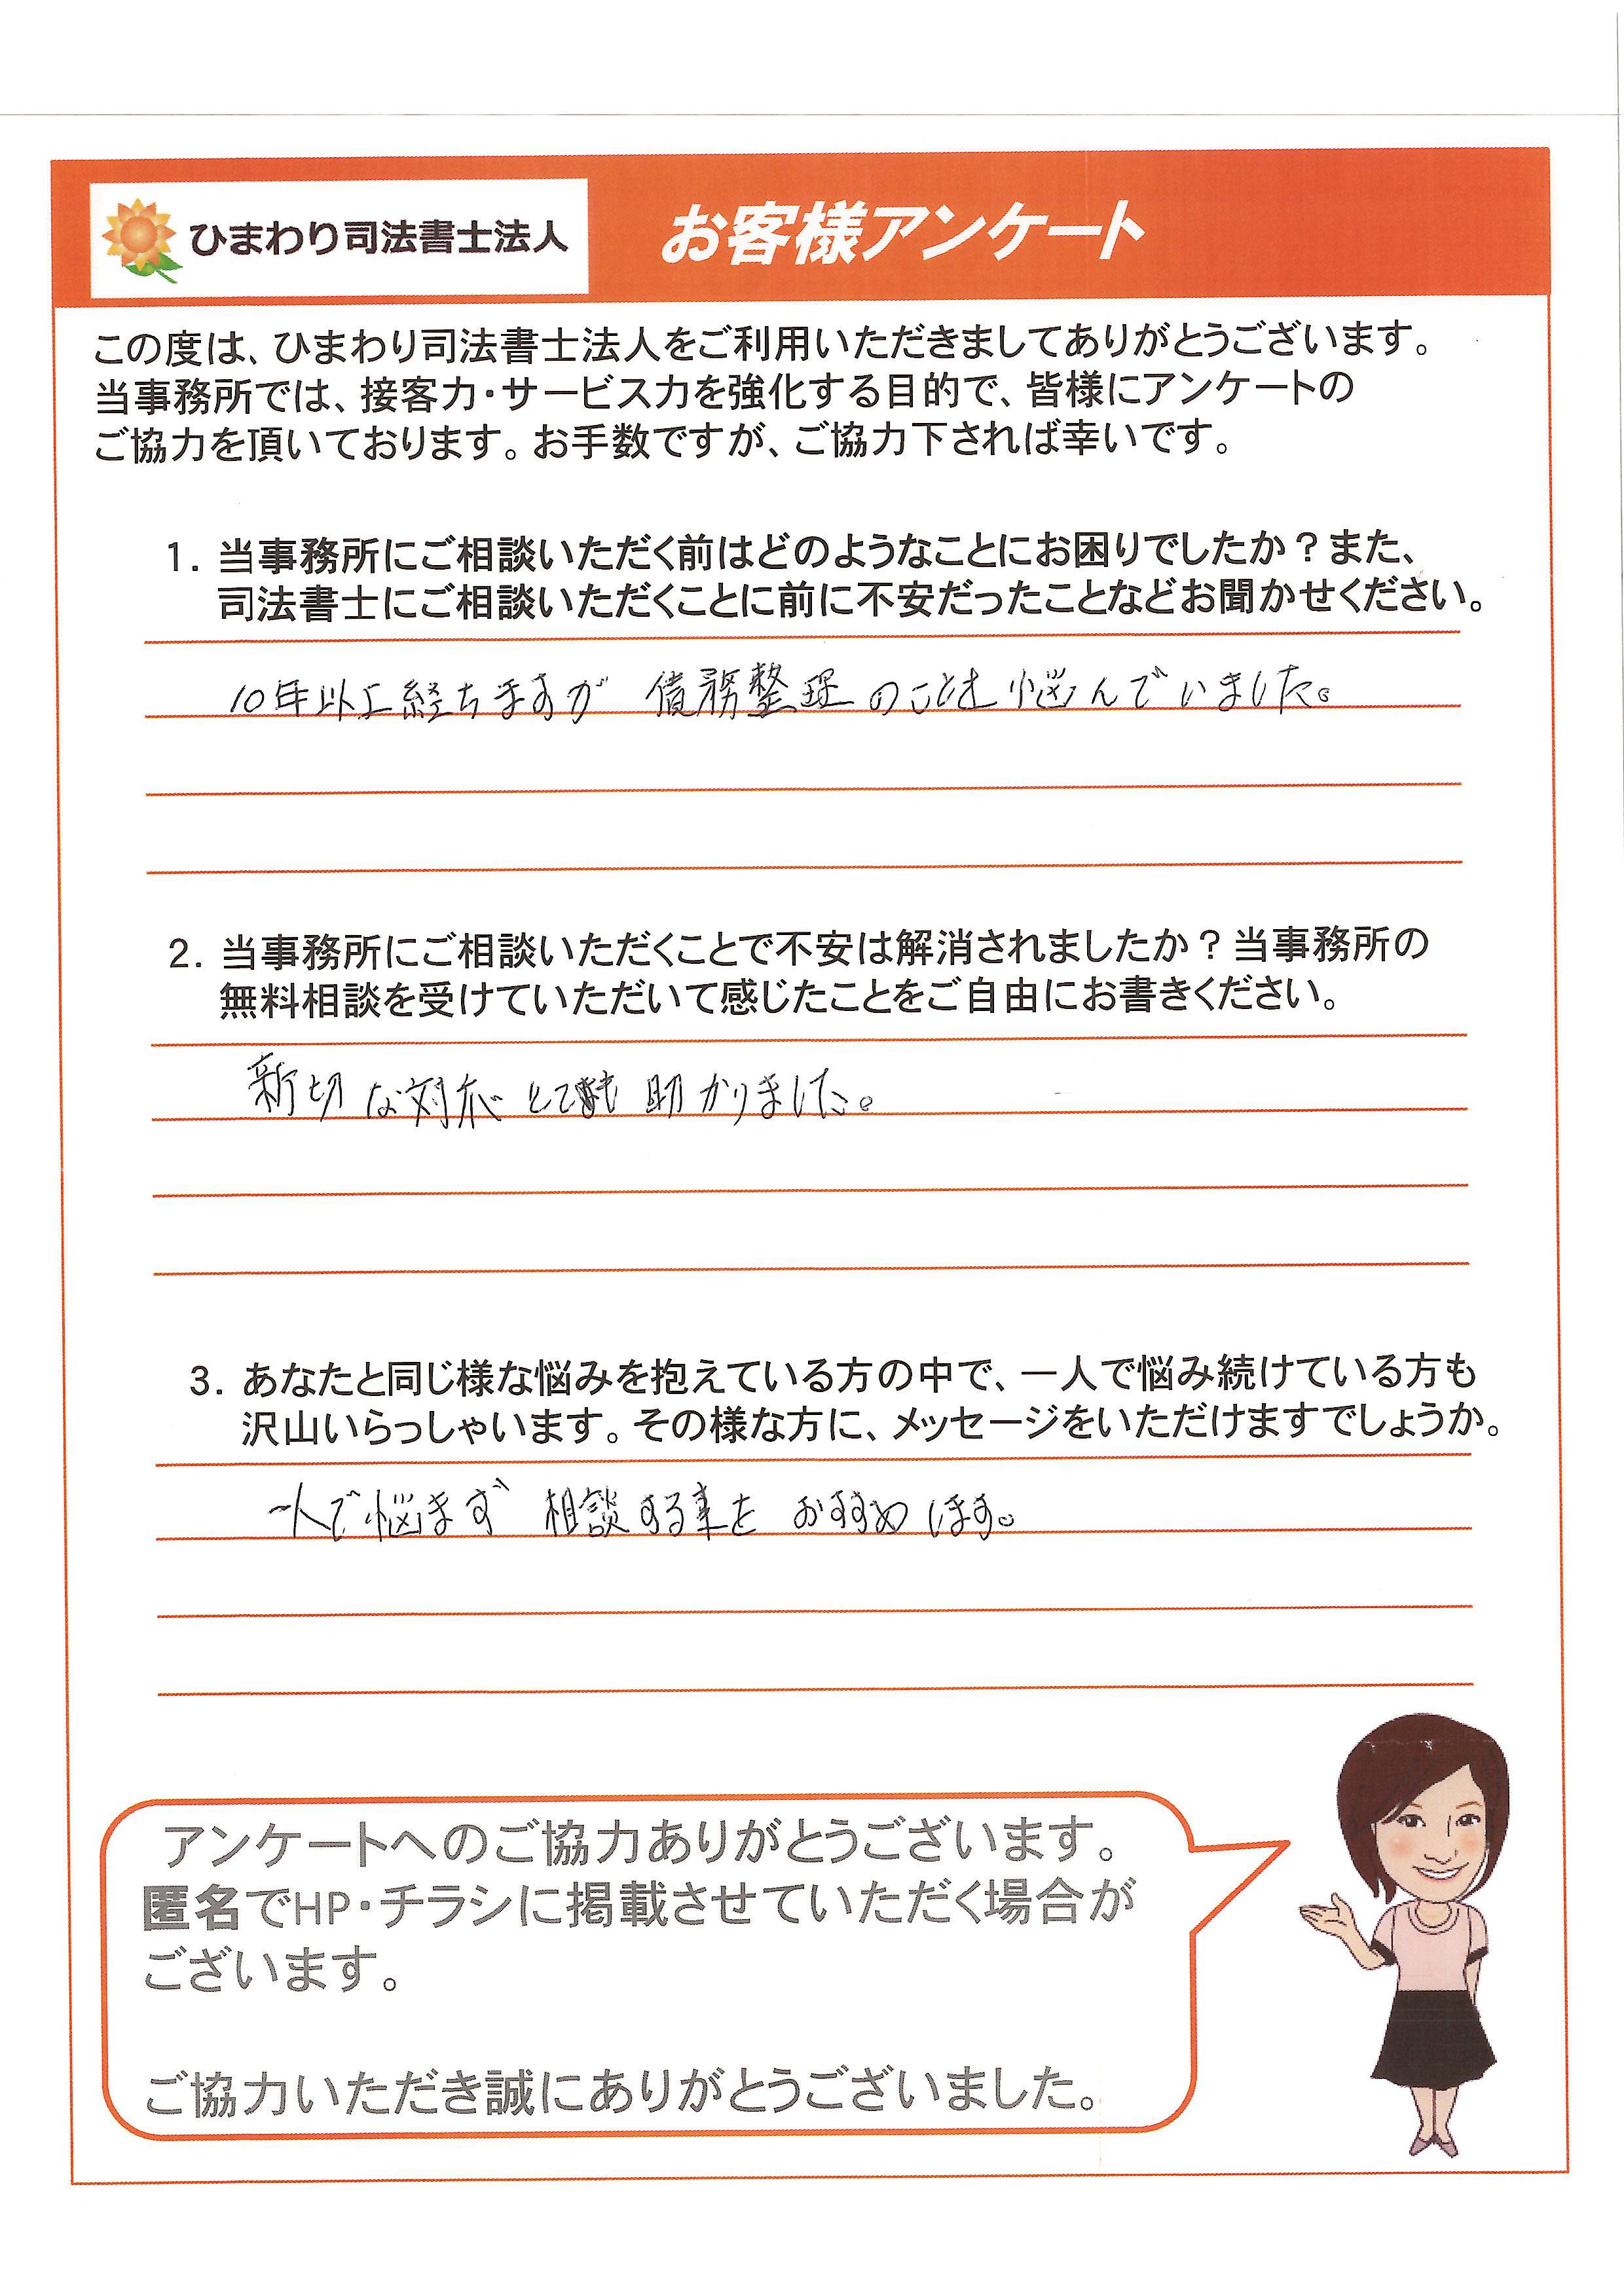 ひまわり司法書士法人
お客様アンケート
この度は、ひまわり司法書士法人をご利用いただきましてありがとうございます。
当事務所では、接客力・サービス力を強化する目的で、皆様にアンケートの
ご協力を頂いております。お手数ですが、ご協力下されば幸いです。
1. 当事務所にご相談いただく前はどのようなことにお困りでしたか？また、
司法書士にご相談いただくことに前に不安だったことなどお聞かせください。
10年以上経ちますが 債務整理のことを悩んでいました。
2. 当事務所にご相談いただくことで不安は解消されましたか？当事務所の
無料相談を受けていただいて感じたことをご自由にお書きください。
新切な対応 とても 助かりました。
3. あなたと同じ様な悩みを抱えている方の中で、一人で悩み続けている方も
沢山いらっしゃいます。その様な方に、メッセージをいただけますでしょうか。
一人で悩まず 相談する事を おすすめします。
アンケートへのご協力ありがとうございます。
匿名でHP・チラシに掲載させていただく場合が
ございます。
ご協力いただき誠にありがとうございました。